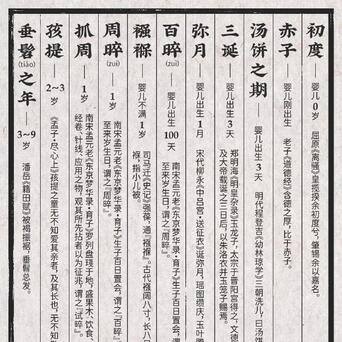 初度
婴儿0岁
屈原《离骚》皇揽揆余初度兮，肇锡余以嘉名。
赤子
婴儿刚出生
老子《道德经》含德之厚，比于赤子。
汤饼之期
婴儿出生3天
明代程登吉《幼林琼学》三朝洗儿，曰汤饼
三诞
婴儿出生3天
郑明海《明皇杂录》玉龙子，太宗于晋阳宫得之，文德
及大帝载诞之三日后，以朱洛衣并玉笼子赐焉。
弥月
婴儿出生1月
宋代柳永《中吕宫·送征衣》诞弥月，瑶图缵庆，玉叶腾
百晬
婴儿出生100天
南宋孟元老《东京梦华录·育子》生子百日置会，谓
至来岁生日，谓之『周晬』。
襁褓
婴儿不满1岁
司马迁《史记》强葆，通『襁褓』。古代襁阔八寸，长八
褓，指小儿被。
周晬
(zuì)
1岁
南宋孟元老《东京梦华录·育子》生子百日置会，谓之『百晬』。
至来岁生日，谓之『周晬』。
抓周
1岁
南宋孟元老《东京梦华录·育子》罗列盘琖于地，盛果木、饮食、
经卷、针线、应用之物，观其所先拈者以为征兆，谓之『试晬』。
孩提
2~3岁
《孟子·尽心上》孩提之童无不知爱其亲者，及其长也，无不知
垂髫之年
(tiáo)
3~9岁
潘岳《籍田赋》被褐振裾，垂髫总发。